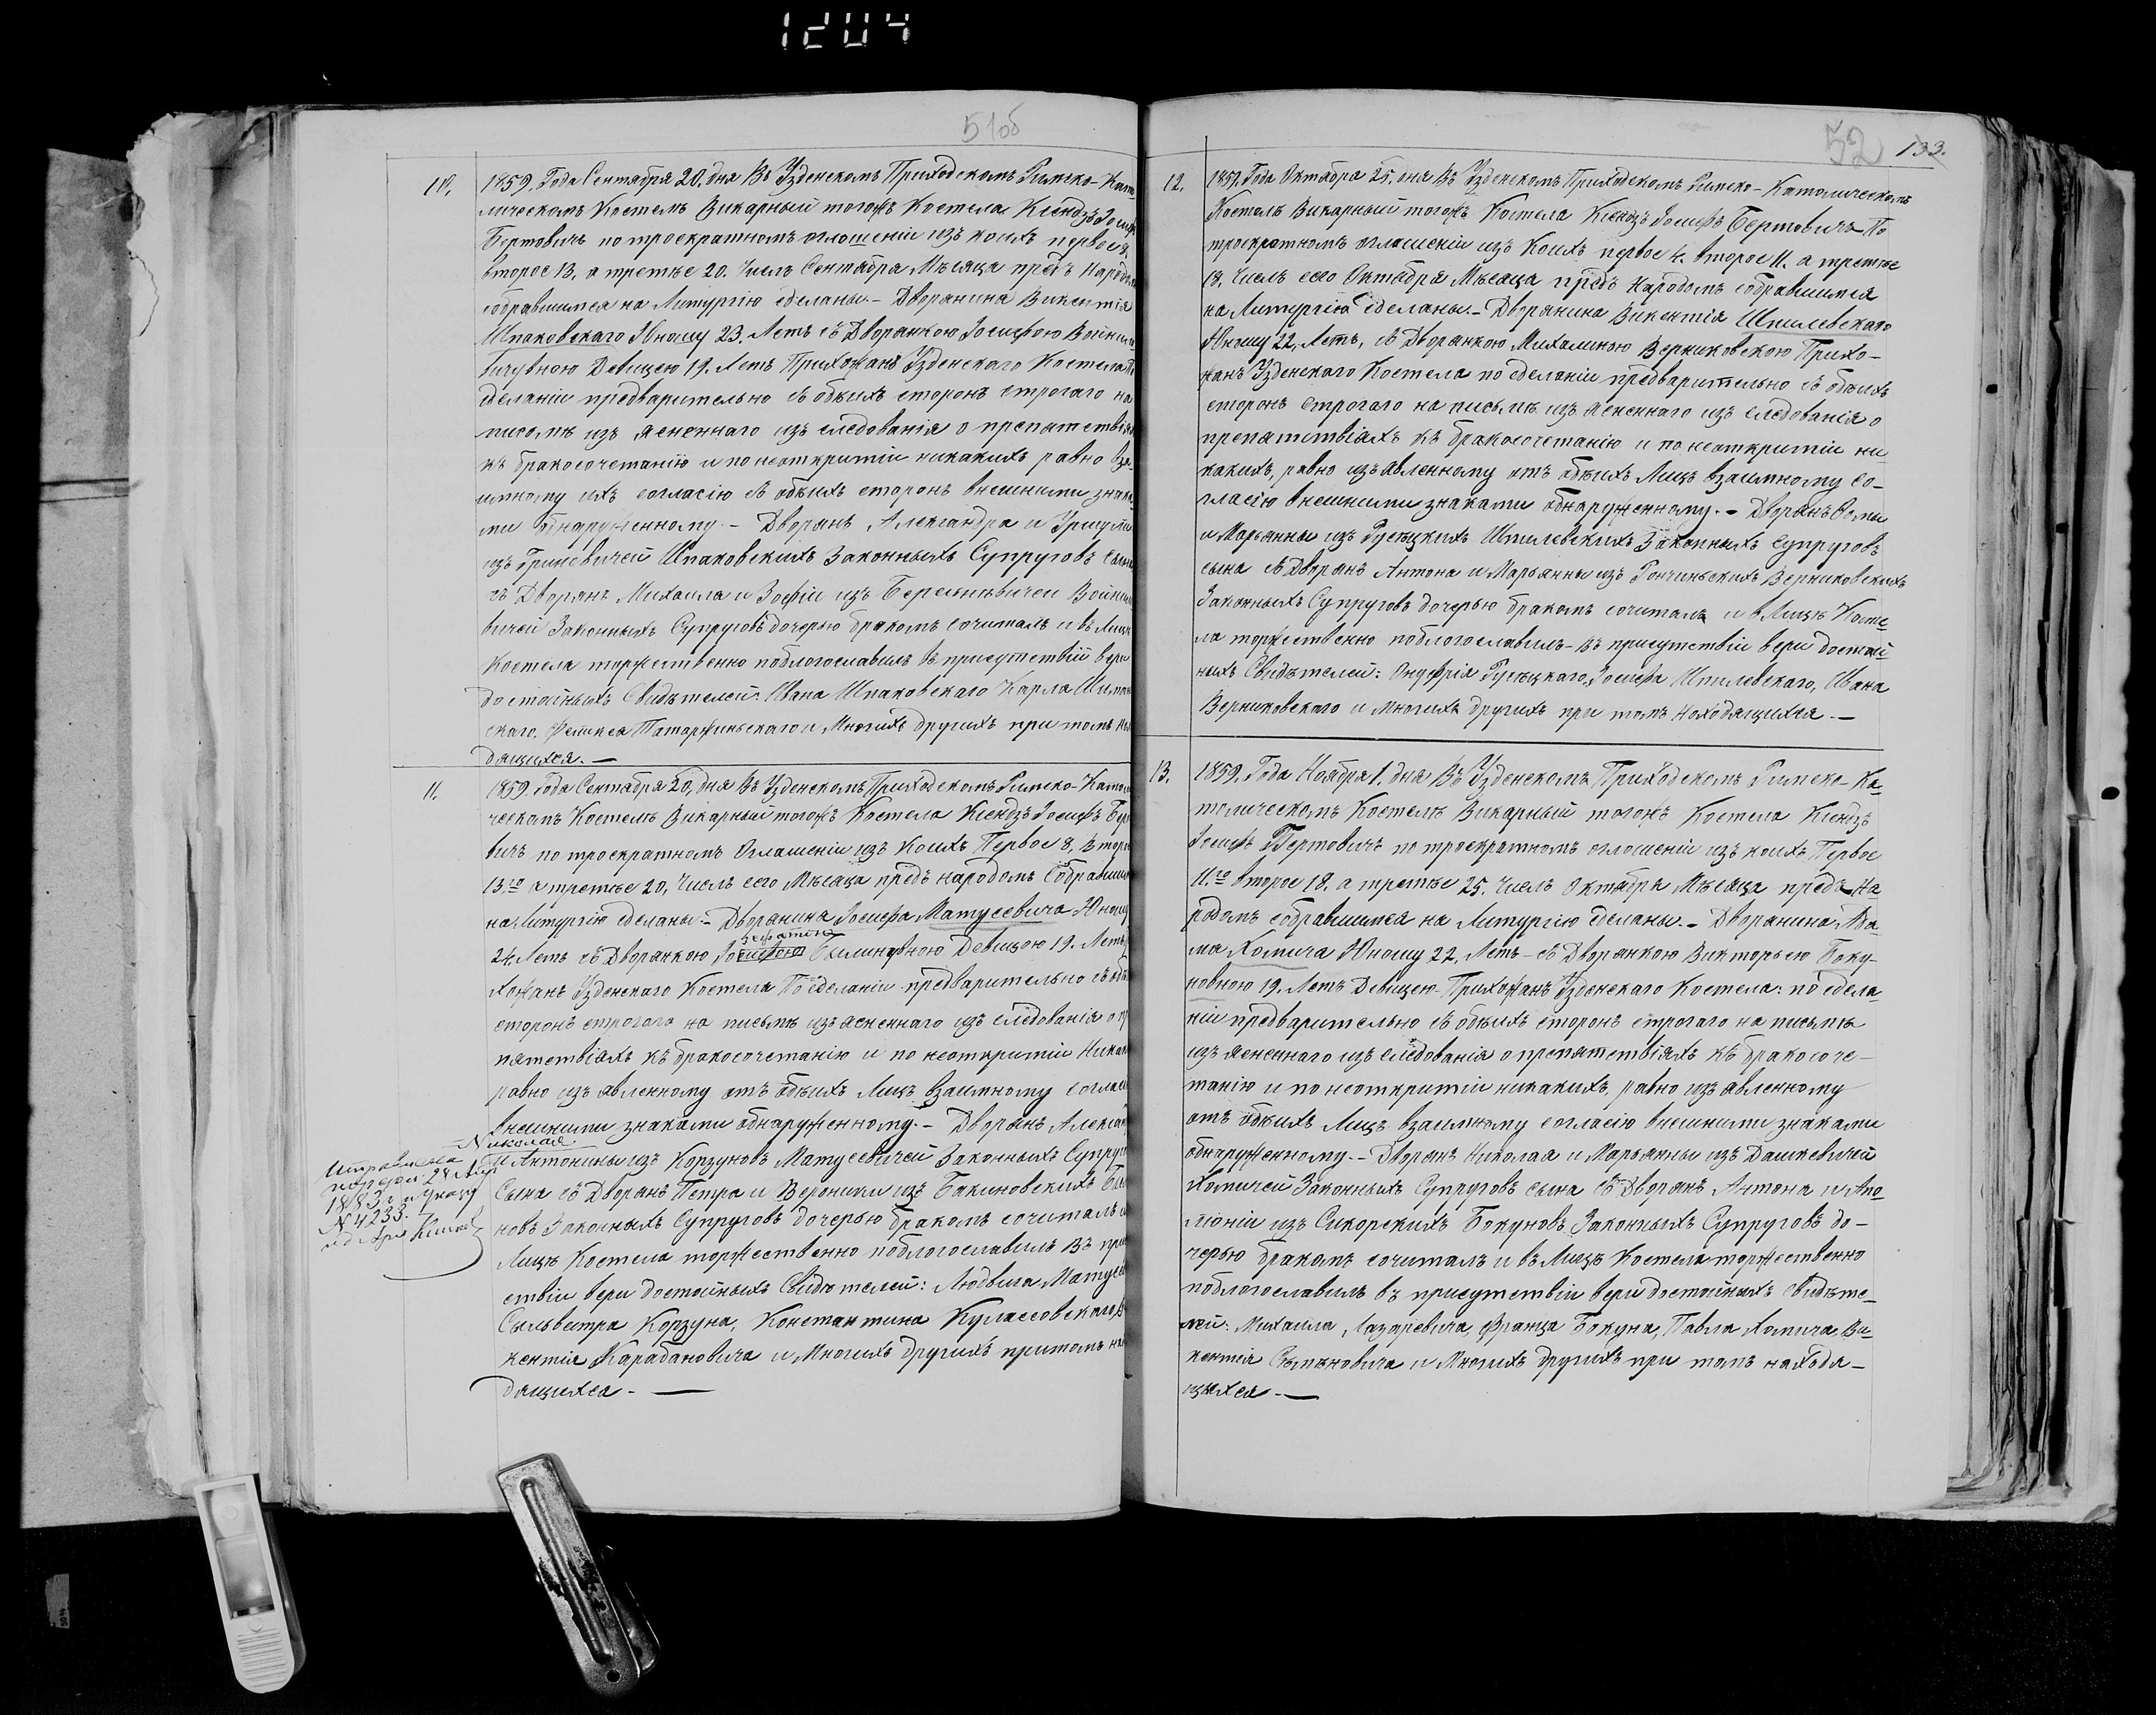 1204
51об
10.
1859. Года Сентября 20. дня Въ Узденскомъ Приходскомъ Римско-Като
лическомъ Костелѣ Викарный тогожъ Костела Ксендзъ Іосифъ
Бертовичъ по троекратномъ оглошеніи изъ коихъ первое
второе 13, а третье 20. Числъ Сентября Мѣсяца предъ Народом
собравшимся на Литургію сделаны.- Дворянина Викентія
Шпаковскаго Юношу 23. Летъ съ Дворянкою Іосифою Войнило
вичувною Девицею 19. Летъ Прихожанъ Узденскаго Костела По
сделаніи предварительно съ обѣихъ сторонъ строгаго на
письмѣ изъ ясненнаго изъ следованія о препятствіях
къ бракосочетанію и по неоткритіи никакихъ равно вза
имному ихъ согласію съ обѣихъ сторонъ внешними знака
ми обнаруженному.- Дворянъ Александра и Уршули
изъ Гриневичей Шпаковскихъ Законныхъ Супруговъ сына
съ Дворянъ Михаила и Зофіи изъ Войнило
вичей Законныхъ Супруговъ дочерью бракомъ сочиталъ и въ Лицѣ
Костела торжественно поблогославилъ въ присутствіи вери
достойныхъ Свидѣтелей: Ивана Шпаковскаго Карла Шиман
скаго, Феликса Татаржинскаго и Многихъ другихъ при томъ нахо
дящихся.—
11.
1859. Года Сентября 20, дня Въ Узденскомъ Приходскомъ Римско-Католи
ческомъ Костелѣ Викарный тогожъ Костела Ксендзъ Іосифъ Берто
вичъ по троекратномъ Оглашеніи изъ коихъ Первое 8, Второе
13.го а третье 20, Числъ сего Мѣсяца предъ народомъ Собравшим
на Литургію сделаны.- Дворянина Іосифа Матусевича Юношу
24. Летъ съ Дворянкою Іосифою Былинувною Девицею 19. Летъ
хожанъ Узденскаго Костела По сделаніи предварительно съ обѣ
сторонъ строгаго на письмѣ изъ ясненнаго изъ следованія о пр
пятствіяхъ къ бракосочетанію и по неоткритіи Никак
равно изъ явленному отъ обѣихъ Лицъ взаимному соглас
внешними знаками обнаруженному.- Дворянъ Алексан
Николая
и Антонины изъ Корзуновъ Матусевичей Законныхъ Супруг
Сына съ Дворянъ Петра и Вероники изъ Бакиновскихъ Бы
новъ Законныхъ Супруговъ дочерью бракомъ сочиталъ и
Лицѣ Костела торжественно поблогославилъ Въ при
ствіи вери достойныхъ Свидѣтелей: Людвига Матусе
Сильвестра Корзуна, Константина Кулассовскаго, Ви
кентія Карабановича и Многихъ другихъ притомъ на
дящихся.—
1883. г. и Указу
N 4233.
52
133.
12.
1859. Года Октября 25. дня Въ Узденскомъ Приходскомъ Римско-Католическомъ
Костелѣ Викарный тогожъ Костела Ксендзъ Іосифъ Бертовичъ По
троекратномъ оглашеніи изъ Коихъ первое 4. второе 11. а третье
18. Числъ сего Октября Мѣсяца предъ Народомъ собравшимся
на Литургію сделаны.- Дворянина Викентія Шпилевскаго
Юношу 22, Летъ, съ Дворянкою Михалиною Верниковскою Прихо-
жанъ Узденскаго Костела по сделаніи предварительно съ обѣихъ
сторонъ строгаго на письмѣ изъ ясненнаго изъ следованія о
препятствіяхъ къ бракосочетанію и по неоткритіи ни
какихъ, равно изъ явленному отъ обѣихъ Лицъ взаимному со-
гласію внешними знаками обнаруженному.- Дворянъ Фомы
и Марьянны изъ Русецкихъ Шпилевскихъ Законныхъ Супруговъ
сына съ Дворянъ Антона и Марьянны изъ Верниковскихъ
Законныхъ Супруговъ дочерью бракомъ сочиталъ и въ Лицѣ Косте
ла торжественно поблогославилъ- въ присутствіи вери достой
ныхъ Свидѣтелей: Онуфрія Русецкаго, Іосифа Шпилевскаго, Ивана
Верниковскаго и Многихъ другихъ при томъ Находящихся.—
13.
1859. Года Ноября 1. дня Въ Узденскомъ Приходскомъ Римско-Ка
толическомъ Костелѣ Викарный тогожъ Костела Ксендзъ
Іосифъ Бертовичъ по троекратномъ оглошеніи изъ коихъ Первое
11.го второе 18. а третье 25. Числъ Октября Мѣсяца предъ На
родомъ собравшимся на Литургію сделаны.- Дворянина Ада
ма Хомича Юношу 22, Летъ- съ Дворянкою Викторьею Боку-
новною 19. Летъ Девицею Прихожанъ Узденскаго Костела: по сдела
ніи предварительно съ обѣихъ сторонъ строгаго на письмѣ
изъ ясненнаго изъ следованія о препятствіяхъ къ бракосоче-
танію и по неоткритіи никакихъ, равно изъ явленному
отъ обѣихъ Лицъ взаимному согласію внешними знаками
обнаруженному.- Дворянъ Николая и Марьянны изъ Дашкевичей
Хомичей Законныхъ Супруговъ сына съ Дворянъ Антона и Апо
лоніи изъ Сикорскихъ Бокуновъ Законныхъ Супруговъ до-
черью бракомъ сочиталъ и въ Лицѣ Костела торжественно
поблогославилъ въ присутствіи вери достойныхъ Свидѣте-
лей: Михаила, Лазаревича, Франца Бокуна, Павла Хомича Ви
кентія и Многихъ другихъ при томъ находя-
щихся.—